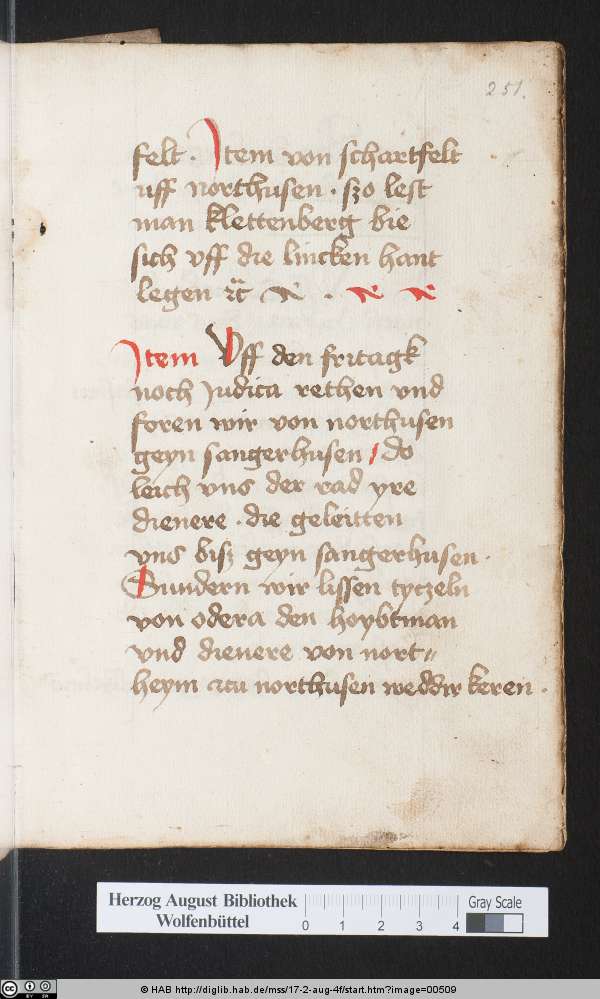 251.
felt · Item von schartfelt
uff northusen · szo lest
man klettenberg bie
sich vff die lincken hant
legen ꝛc̃
Item Vff den fritagk
noch Judica rethen vnd
foren wir von northusen
geyn sangerhusen / do
leich vns der rad yre
dienere · die geleitten
vns bisz geyn sangerhusen ·
Sundern wir lissen tyczeln
von odera den hoybtman
vnd dienere von nort〃
heym czu northusen weddir keren ·
Herzog August Bibliothek
Wolfenbüttel
0 1 2 3 4
Gray Scale
© HAB http://diglib.hab.de/mss/17-2-aug-4f/start.htm?image=00509